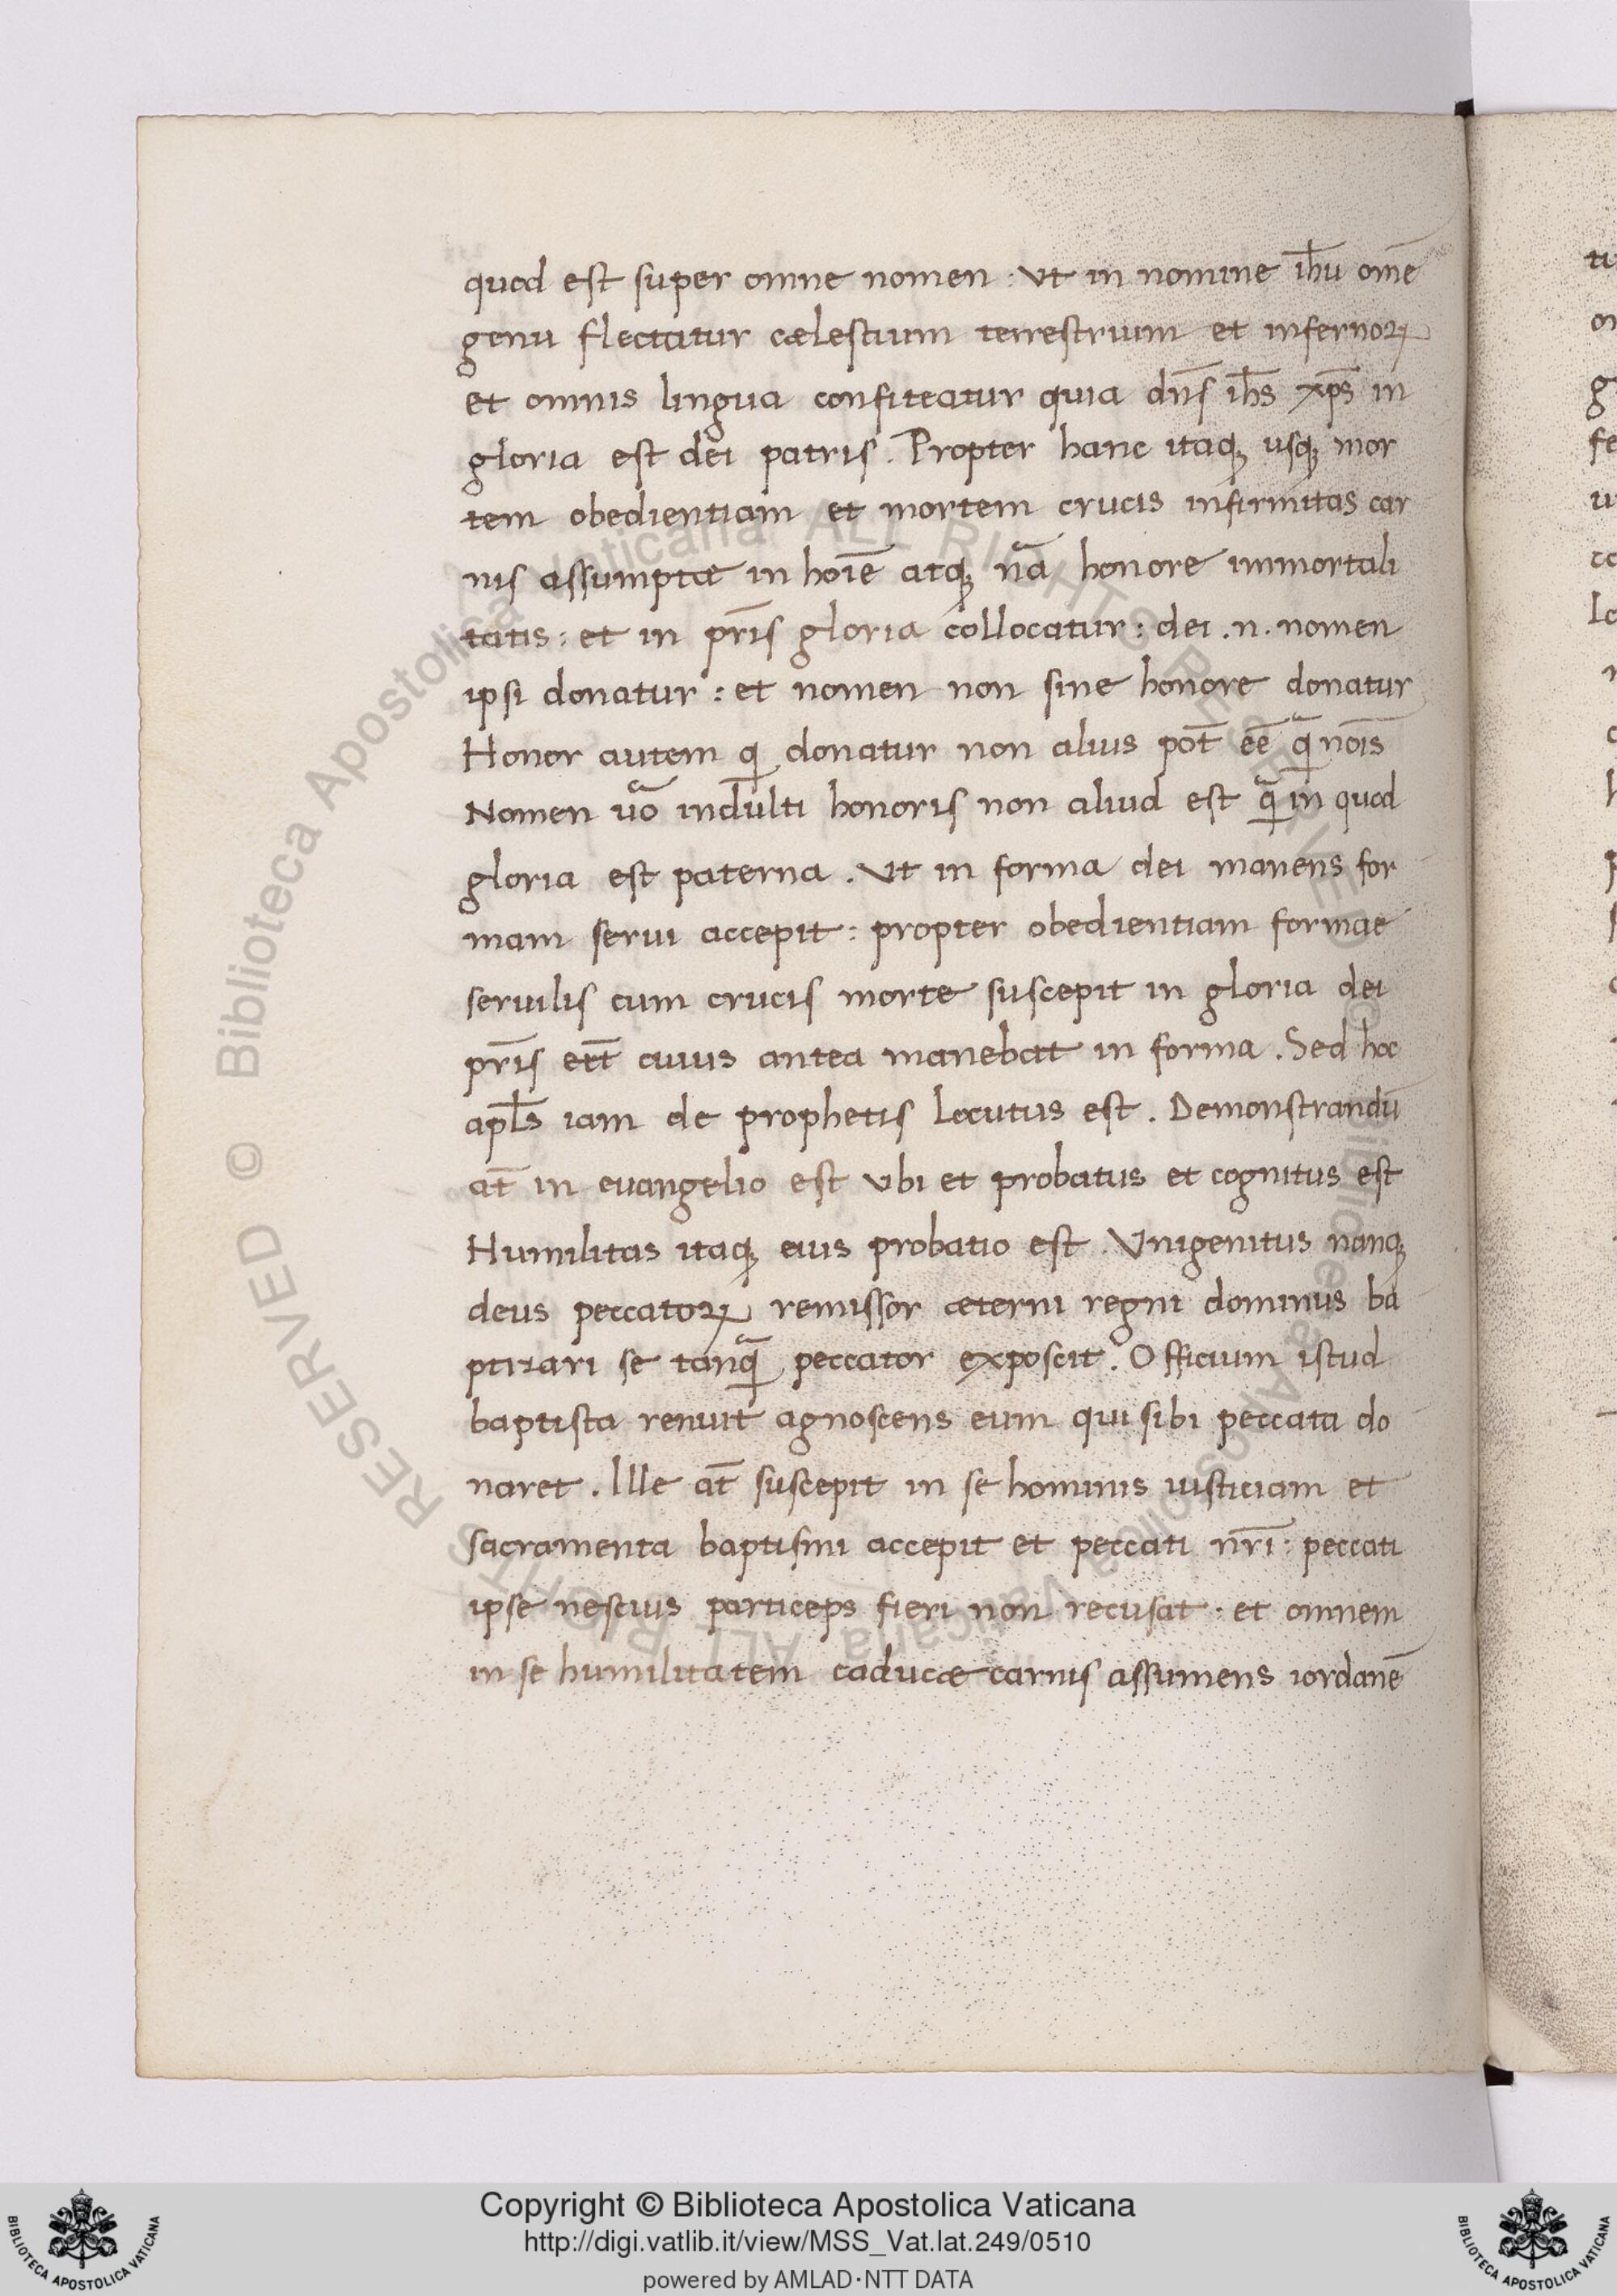 quod est super omne nomen : ut in nomine ihu̅ om̅e
genu flectatur cælestium terrestrium et infernoꝝ
et omnis lingua confiteatur quia dn̅s ih̅s xp̅s in
gloria est dei patris . Propter hanc itaqꝫ usqꝫ mor
tem obedientiam et mortem crucis infirmitas car
nis assumptæ in ho̅i̅e atqꝫ na̅ honore immortali
tatis : et in pr̅is gloria collocatur : dei .n. nomen
ipsi donatur : et nomen non sine honore donatur
Honor autem qi donatur non alius pot̅ ee̅ q̅ no̅i̅s
Nomen uo̅ indulti honoris non aliud est q̅ in quod
gloria est paterna . Ut in forma dei manens for
mam serui accepit : propter obedientiam formae
seruilis cum crucis morte suscepit in gloria dei
pr̅is eet̅ cuius antea manebat in forma . Sed hoc
apl̅s iam de prophetis locutus est . Demonstrandu̅
at̅ in euangelio est ubi et probatus et cognitus est
Humilitas itaqꝫ eius probatio est . Unigenitus nanqꝫ
deus peccatoꝝ remissor æterni regni dominus ba
ptizari se tanq̅ peccator exposcit . Officium istud
baptista renuit agnoscens eum qui sibi peccata do
naret . Ille at̅ suscepit in se hominis iusticiam et
sacramenta baptismi accepit et peccati nr̅i : peccati
ipse nescius particeps fieri non recusat : et omnem
in se humilitatem caducæ carnis assumens iordane̅
© Biblioteca Apostolica Vaticana ALL RIGHTS RESERVED © Biblioteca Apostolica Vaticana ALL RIGHTS RESERVED
BIBLIOTECA APOSTOLICA VATICANA
Copyright © Biblioteca Apostolica Vaticana
http://digi.vatlib.it/view/MSS_Vat.lat.249/0510
powered by AMLAD·NTT DATA
BIBLIOTECA APOSTOLICA VATICANA